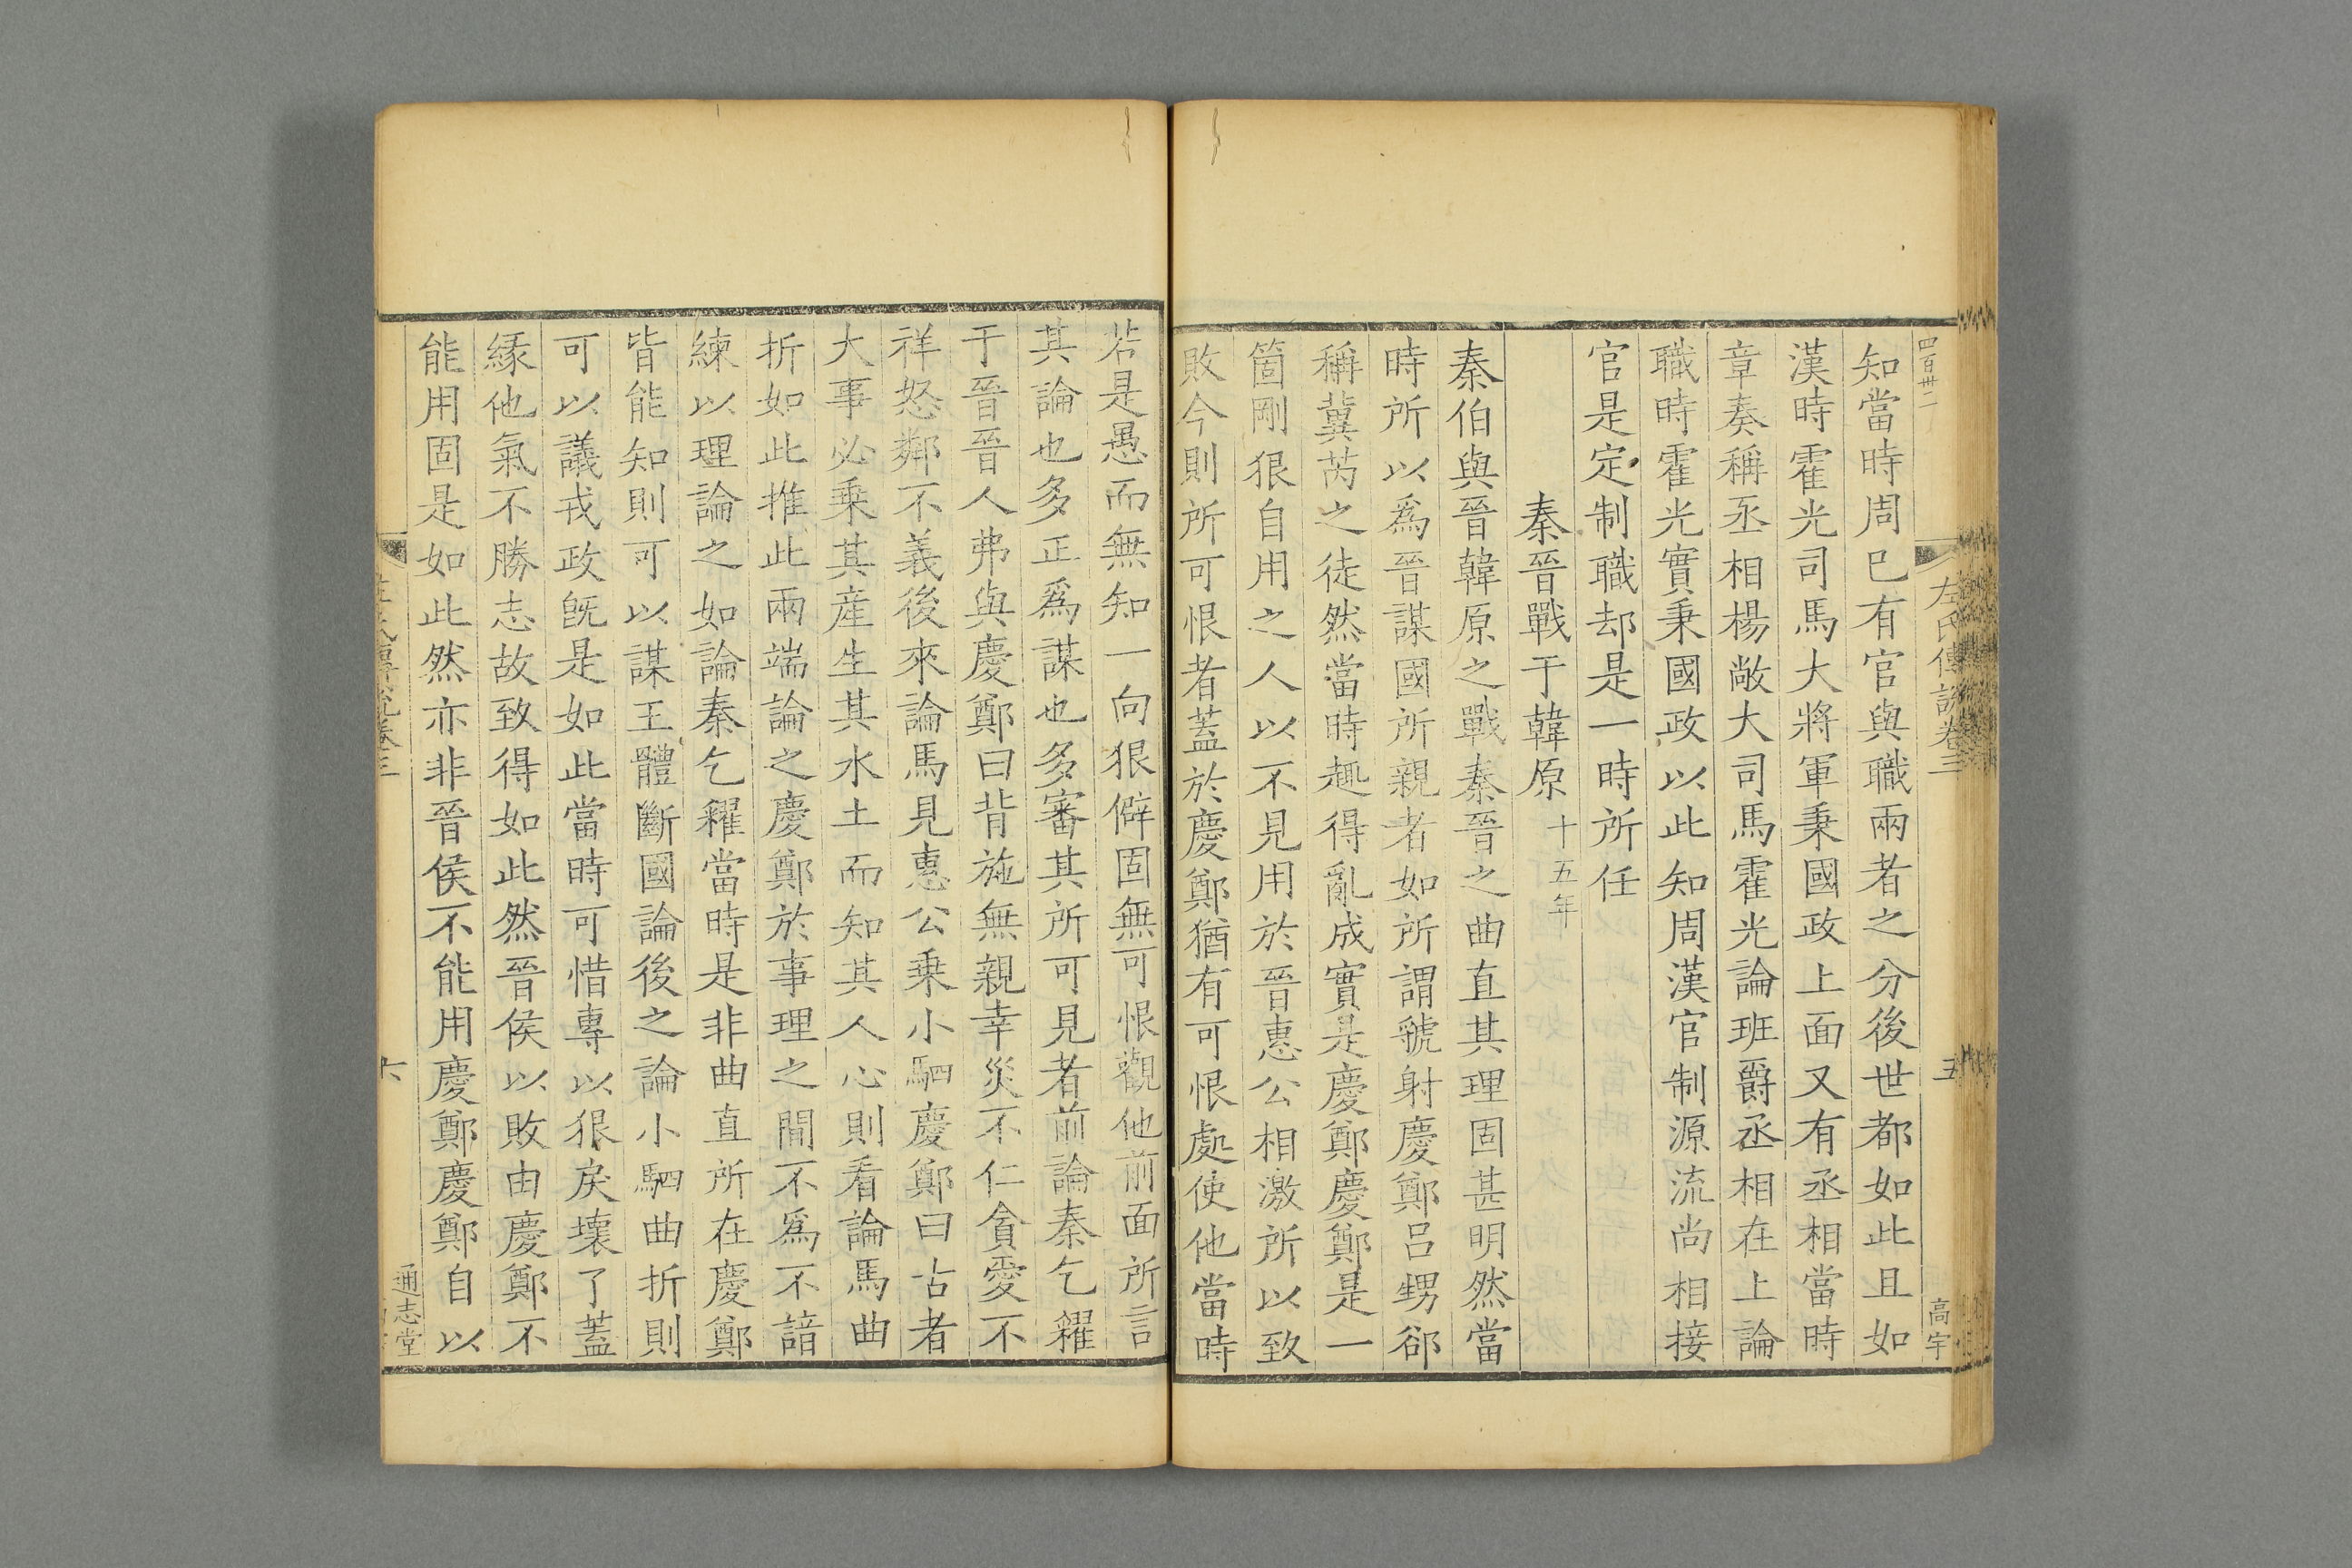 四百卅二
左氏傳說卷三
五
高宇
知當時周已有官與職兩者之分後世都如此且如
漢時霍光司馬大將軍秉國政上面又有丞相當時
章奏稱丞相楊敞大司馬霍光論班爵丞相在上論
職時霍光實秉國政以此知周漢官制源流尚相接
官是定制職却是一時所任
秦晉戰于韓原十五年
秦伯與晉韓原之戰秦晉之曲直其理固甚明然當
時所以爲晉謀國所親者如所謂虢射慶鄭呂甥郤
稱冀芮之徒然當時趣得亂成實是慶鄭慶鄭是一
箇剛狠自用之人以不見用於晉惠公相激所以致
敗今則所可恨者蓋於慶鄭猶有可恨處使他當時
若是愚而無知一向狠僻固無可恨觀他前面所言
其論也多正爲謀也多審其所可見者前論秦乞糴
于晉晉人弗與慶鄭曰背施無親幸災不仁貪愛不
祥怒鄰不義後來論馬見惠公乗小駟慶鄭曰古者
大事必乗其産生其水土而知其人心則看論馬曲
折如此推此兩端論之慶鄭於事理之間不爲不諳
練以理論之如論秦乞糴當時是非曲直所在慶鄭
皆能知則可以謀王體斷國論後之論小駟曲折則
可以議戎政旣是如此當時可惜專以狠戾壞了蓋
縁他氣不勝志故致得如此然晉侯以敗由慶鄭不
能用固是如此然亦非晉侯不能用慶鄭慶鄭自以
左氏傳說卷三
六
通志堂